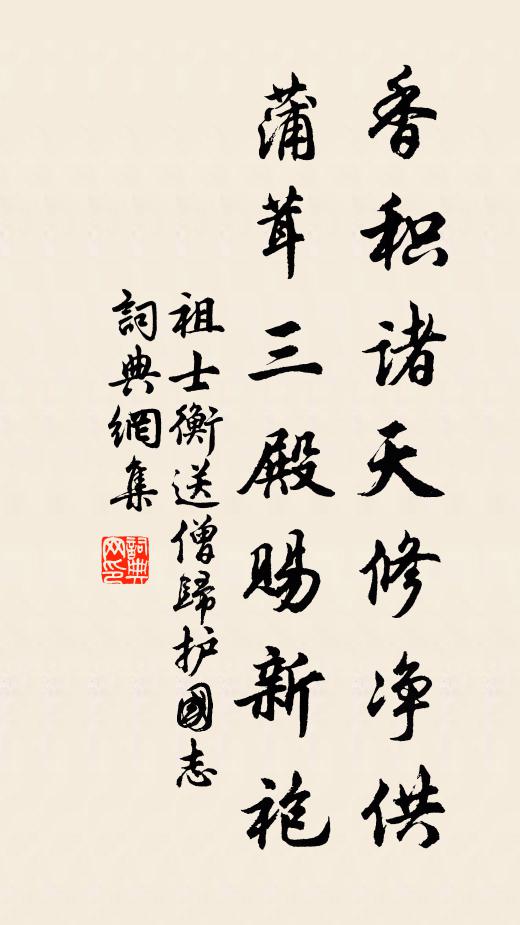 香积诸天修净供
蒲茸三殿赐新袍
祖士衡送僧歸护國志
詞典網集
詞典网印